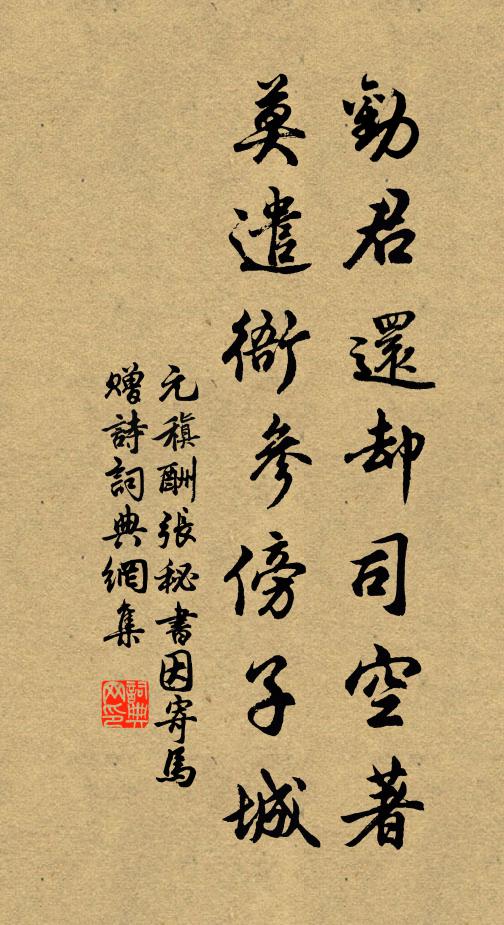 勸君還却司空著
莫遣衙參傍子城
元稹酬張秘書因寄馬
贈詩詞典網集
詞典
网印